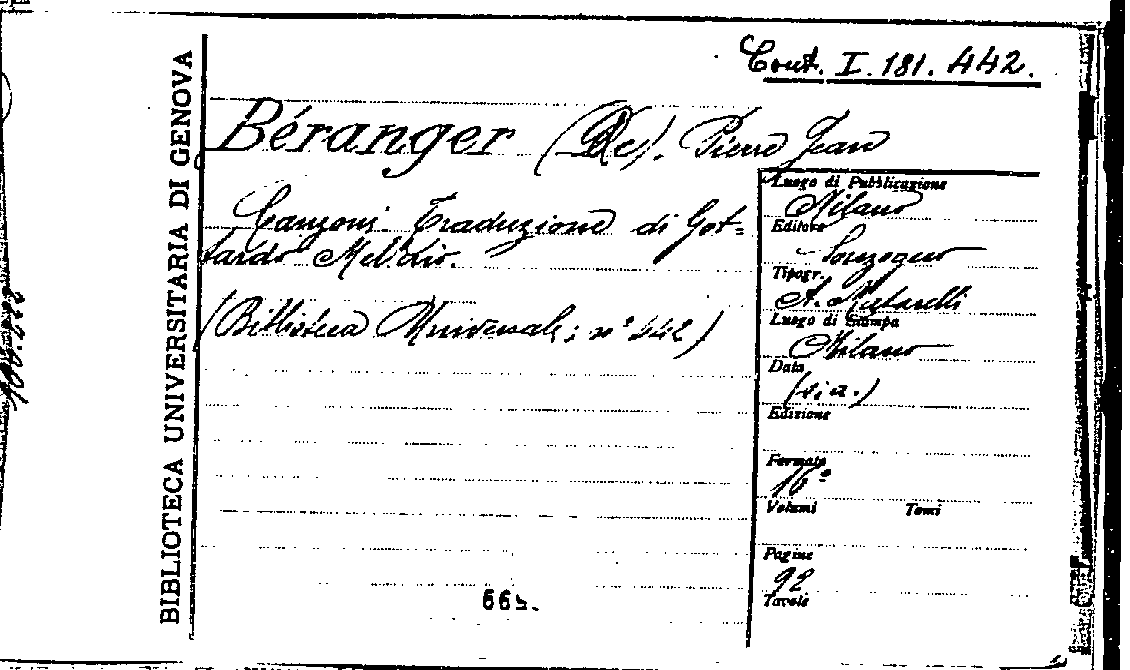 Cont. I. 181. 442.
BIBLIOTECA UNIVERSITARIA DI GENOVA
Béranger (De). Pierre Jean
Canzoni. Traduzione di Got=
tardo
(Biblioteca Universale; n° 442)
Luogo di Pubblicazione
Milano
Editore
Sonzogno
Tipogr.
A.
Luogo di Stampa
Milano
Data
(s. a.)
Edizione
Formato
16°
Volumi Tomi
Pagine
92
Tavole
665.